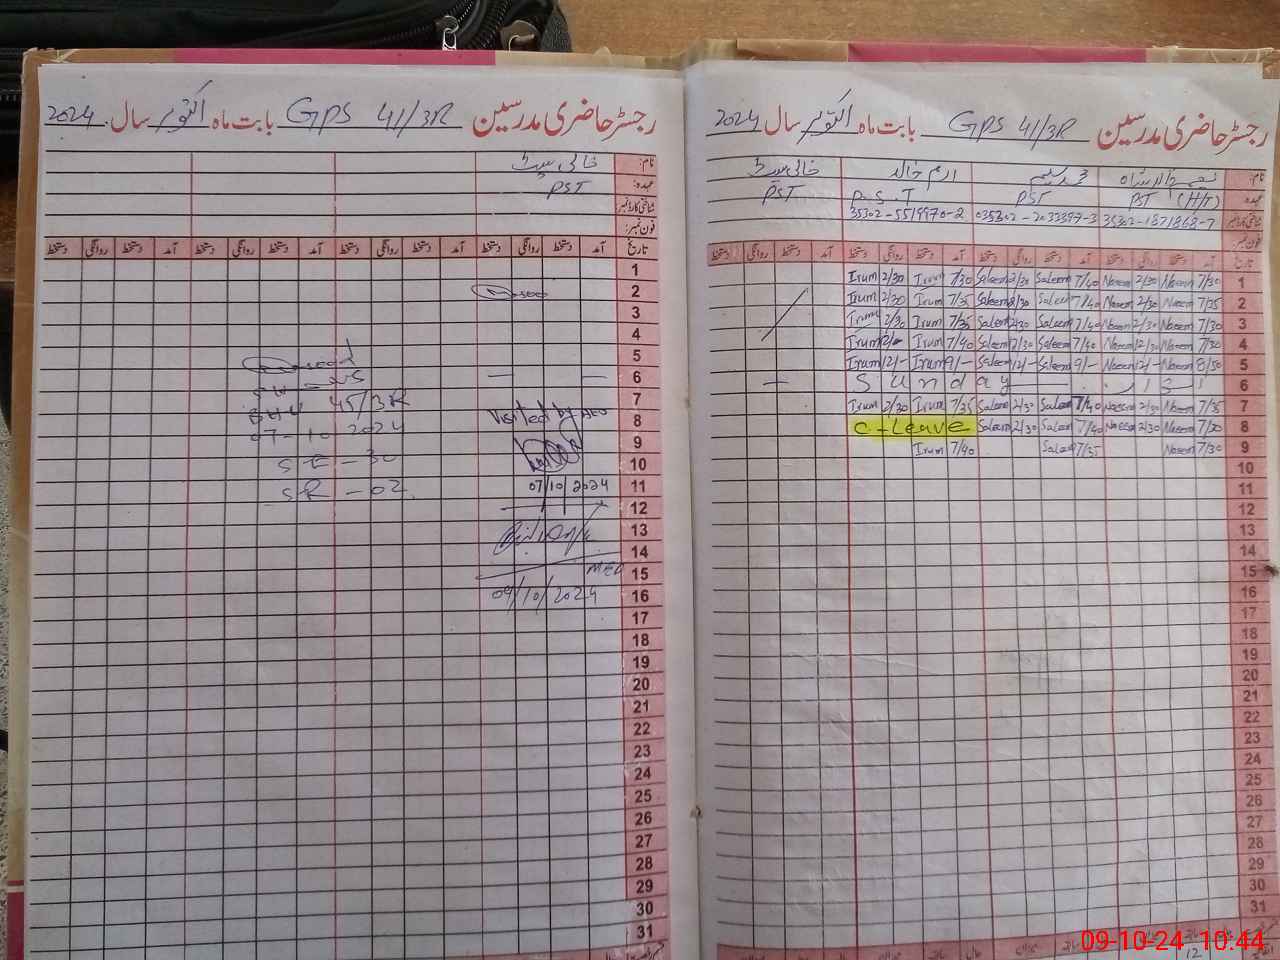 رجسٹر حاضری مدرسین GPS 41/3R بابت ماہ اکتوبر سال 2024
نام: خالی سیٹ
عہدہ: PST
شناختی کارڈ نمبر:
فون نمبر:
تاریخ آمد دستخط روانگی دستخط آمد دستخط روانگی دستخط آمد دستخط روانگی دستخط آمد دستخط روانگی دستخط
1
2
3
4
5
6 — —
7 45/3R
8 Visited by AEO
07-10-2024
9
10 SE-30
11 07/10/2024 SR-02
12
13
14
15 MEA
16 09/10/2024
17
18
19
20
21
22
23
24
25
26
27
28
29
30
31
رجسٹر حاضری مدرسین GPS 41/3R بابت ماہ اکتوبر سال 2024
نام: محمد سلیم ارم خالد خالی سیٹ
عہدہ: PST (H/T) PST P.S.T PST
35302-1871868-7 035302-2033397-3 35302-5519970-2
فون نمبر:
تاریخ آمد دستخط روانگی دستخط آمد دستخط روانگی دستخط آمد دستخط روانگی دستخط آمد دستخط روانگی دستخط
Irum 2/30 Irum 7/30 Saleem 2/30 Saleem 7/40 Naeem 2/30 Naeem 7/30 1
Irum 2/30 Irum 7/35 Saleem 2/30 Saleem 7/40 Naeem 2/30 Naeem 7/25 2
Irum 2/30 Irum 7/35 Saleem 2/30 Saleem 7/40 Naeem 2/30 Naeem 7/30 3
Irum 12/- Irum 7/40 Saleem Saleem 7/40 Naeem Naeem 7/30 4
Irum 12/- Irum 9/- Saleem 12/- Saleem 9/- Naeem 12/- Naeem 8/50 5
— Sunday 6
Irum 2/30 Irum 7/35 Saleem 2/30 Saleem 7/40 Naeem 2/30 Naeem 7/35 7
C-Leave Saleem 2/30 Saleem 7/40 Naeem 2/30 Naeem 7/30 8
Irum 7/40 Saleem 7/35 Naeem 7/30 9
10
11
12
13
14
15
16
17
18
19
20
21
22
23
24
25
26
27
28
29
30
31
12
09-10-24 10:44